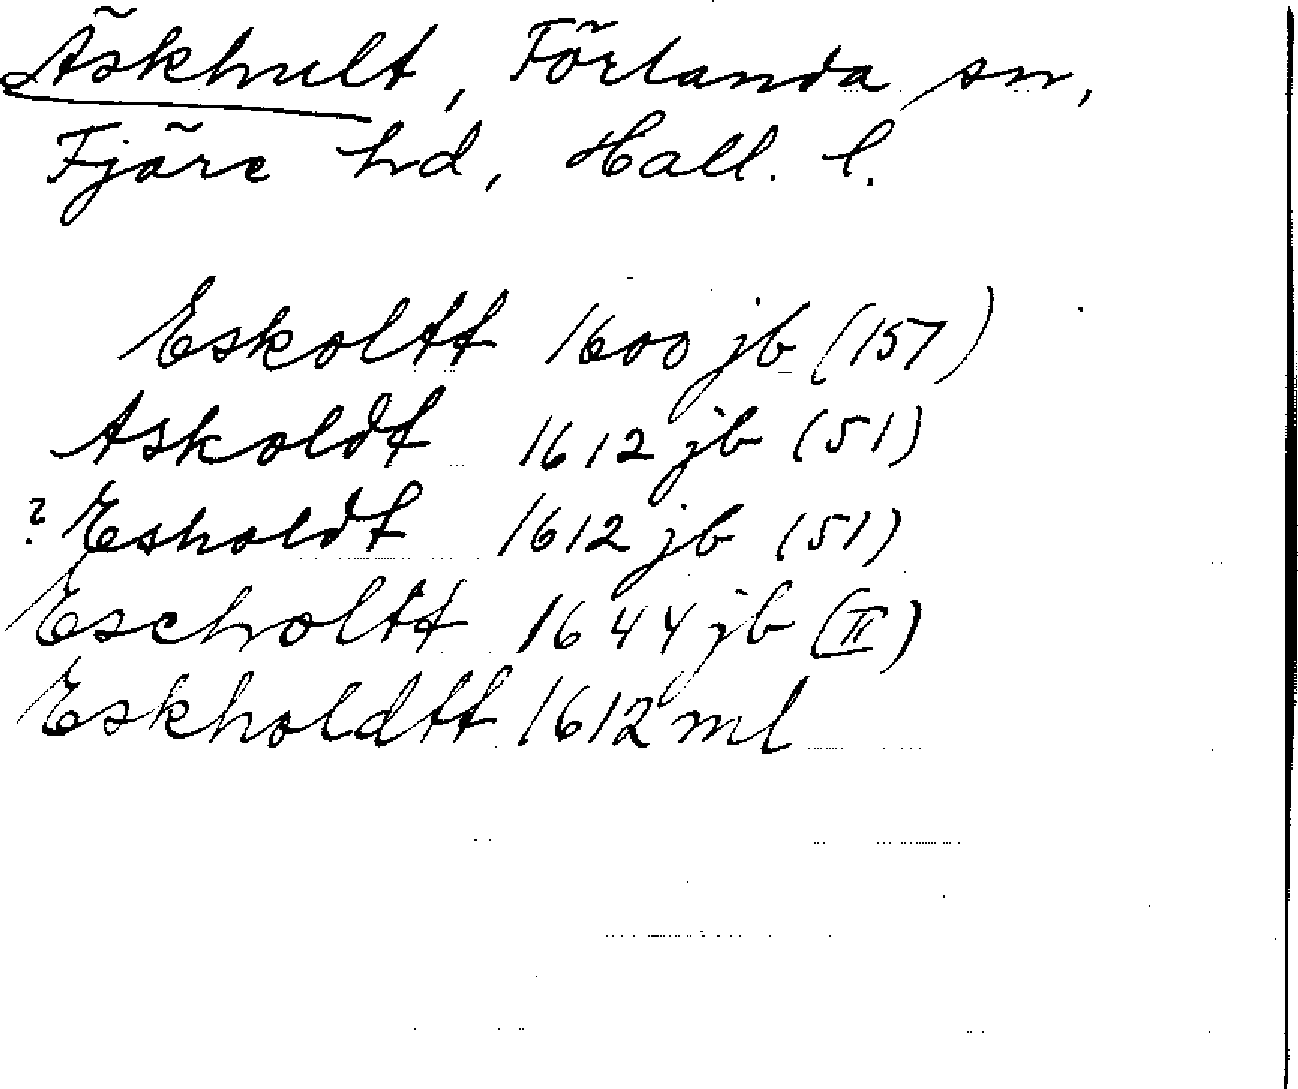 Äskhult, Förlanda sn,
Fjäre hd, Hall. l.
Eskoltt 1600 jb (157)
Askoldt 1612 jb (51)
? Esholdt 1612 jb (51)
Escholtt 1644 jb (II)
Eskholdtt 1612 ml